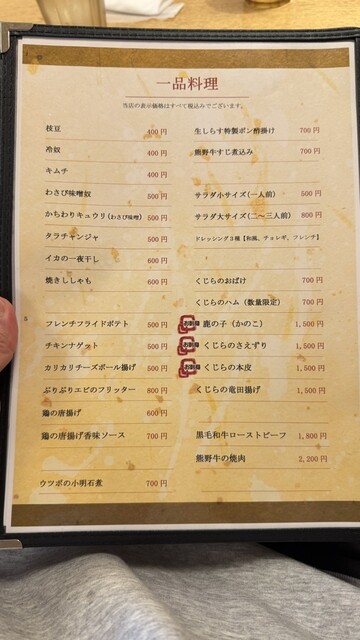 一品料理
当店の表示価格はすべて税込みでございます。
枝豆 400円
冷奴 400円
キムチ 400円
わさび味噌奴 500円
かちわりキュウリ(わさび味噌) 500円
タラチャンジャ 500円
イカの一夜干し 600円
焼きししゃも 600円
フレンチフライドポテト 500円
チキンナゲット 500円
カリカリチーズボール揚げ 500円
ぷりぷりエビのフリッター 800円
鶏の唐揚げ 600円
鶏の唐揚げ香味ソース 700円
ウツボの小明石煮 700円
生しらす特製ポン酢掛け 700円
熊野牛すじ煮込み 700円
サラダ小サイズ(一人前) 500円
サラダ大サイズ(二〜三人前) 800円
ドレッシング3種【和風、チョレギ、フレンチ】
くじらのおばけ 700円
くじらのハム(数量限定) 700円
お刺身 鹿の子(かのこ) 1,500円
お刺身 くじらのさえずり 1,500円
お刺身 くじらの本皮 1,500円
くじらの竜田揚げ 1,500円
黒毛和牛ローストビーフ 1,800円
熊野牛の焼肉 2,200円